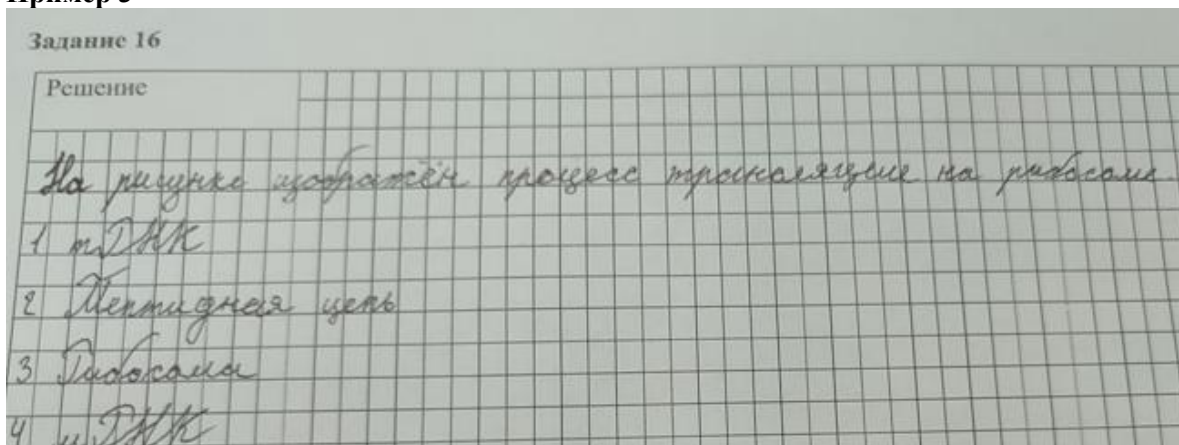 Пример
Задание 16
Решение
На рисунке изображён процесс трансляции на рибосоме.
1 тРНК
2 Пептидная цепь
3 Рибосома
4 иРНК